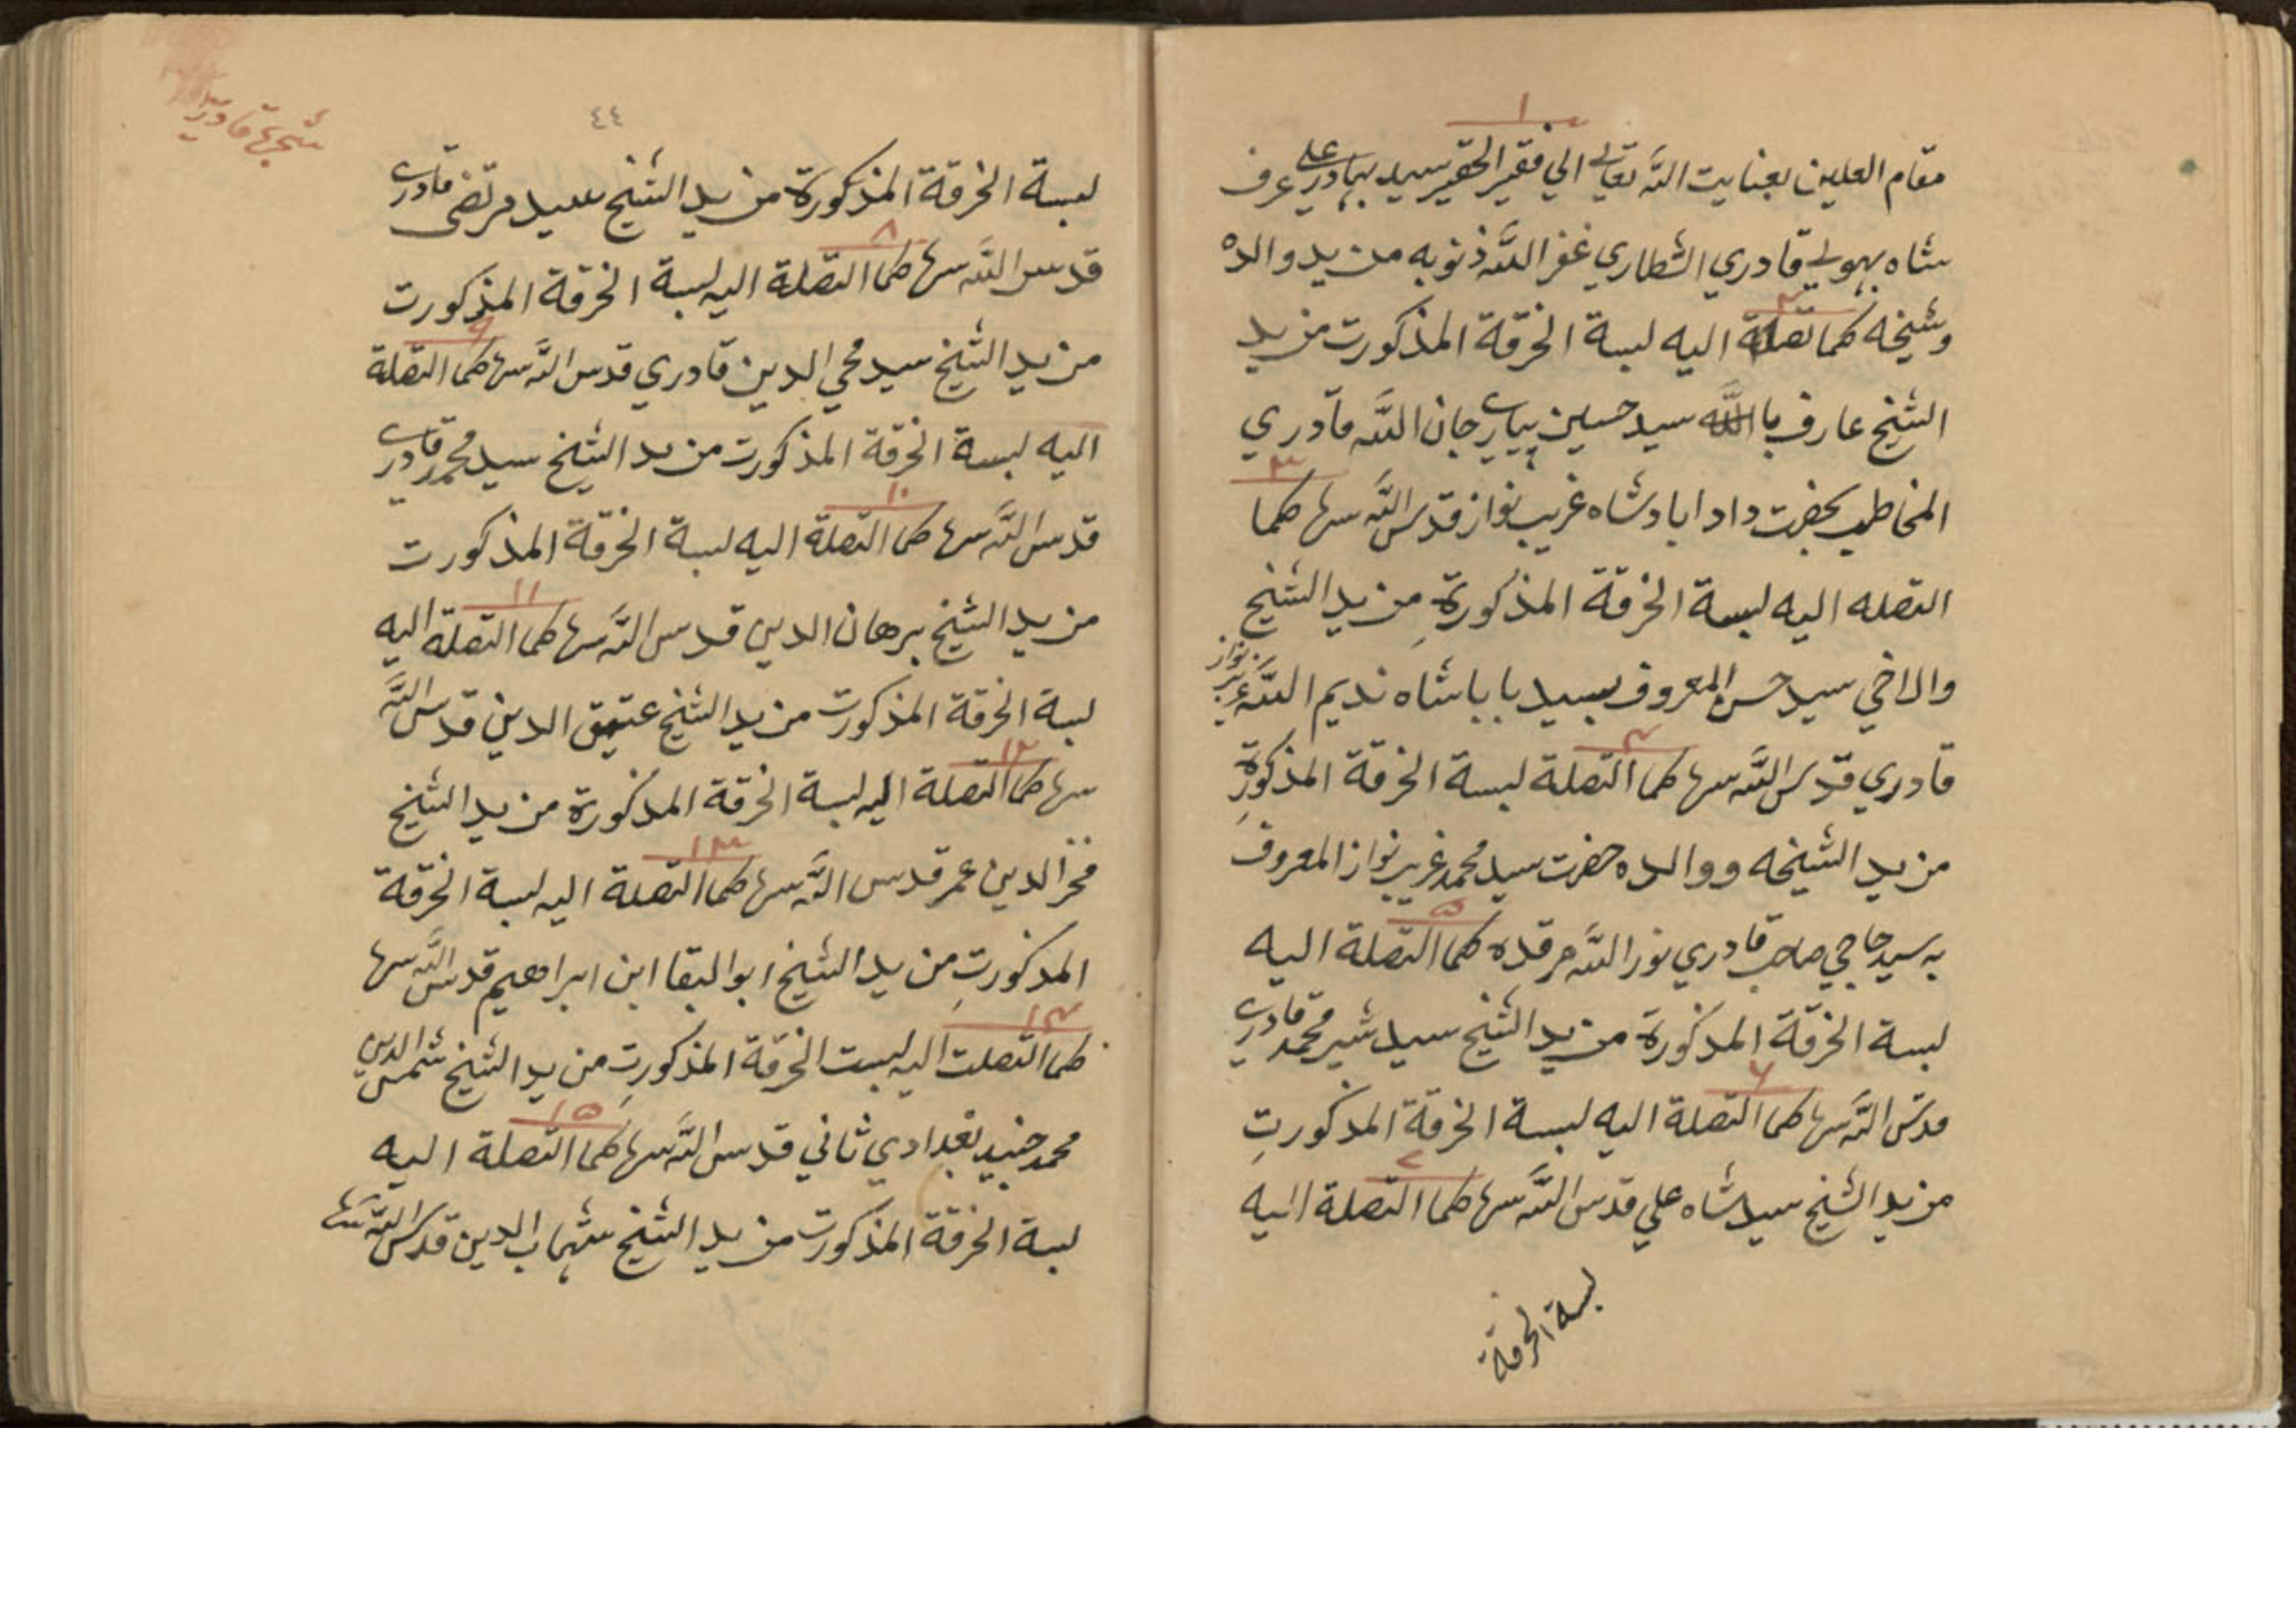 ١
مقام العلين بعنايت الله تعالي الي فقير الحقير سيد بهادر علي عرف
شاه بهولي قادري الشطاري غفر الله ذنوبه من يد والده
٢
وشيخه كما تصلة اليه لبسة الخرقة المذكورت من يد
الشيخ عارف بالله سيد حسين پياري جان الله قادري
٣
المخاطب بحضرت داد اباد شاه غريب نواز قدس الله سرها كما
التصله اليه لبسة الخرقة المذكورة من يد الشيخ
والاخي سيد حسن المعروف بسيد بابا شاه نديم الله غريب نواز
٤
قادري قدس الله سرها كما التصلة لبسة الخرقة المذكورة
من يد الشيخه ووالده حضرت سيد محمد غريب نواز المعروف
٥
به سيد حاجي صاحب قادري نور الله مرقده كما التصلة اليه
لبسة الخرقة المذكورة من يد الشيخ سيد شير محمد قادري
٦
قدس الله سرها كما التصلة اليه لبسة الخرقة المذكورتِ
٧
من يد الشيخ سيد شاه علي قدس الله سرها كما التصلة اليه
لبسة الخرقة
شجرة قادرية
٤٤
لبسة الخرقة المذكورة من يد الشيخ سيد مرتضى قادري
٨
قدس الله سرها كما التصلة اليه لبسة الخرقة المذكورت
٩
من يد الشيخ سيد محي الدين قادري قدس الله سرها كما التصلة
اليه لبسة الخرقة المذكورت من يد الشيخ سيد محمد قادري
١٠
قدس الله سرها كما التصلة اليه لبسة الخرقة المذكورت
١١
من يد الشيخ برهان الدين قدس الله سرها كما التصلة اليه
لبسة الخرقة المذكورت من يد الشيخ عتيق الدين قدس الله
١٢
سرها كما التصلة اليه لبسة الخرقة المذكورة من يد الشيخ
١٣
فخر الدين عمر قدس الله سرها كما التصلة اليه لبسة الخرقة
المذكورتِ من يد الشيخ ابو البقا ابن ابراهيم قدس الله سرها
١٤
كما التصلت اليه لبست الخرقة المذكورتِ من يد الشيخ شمس الدين
١٥
محمد جنيد بغدادي ثاني قدس الله سرها كما التصلة اليه
لبسة الخرقة المذكورت من يد الشيخ شهاب الدين قدس الله سرها